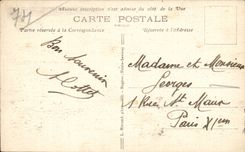 741
Aucune inscription n'est admise du côté de la Vue
CARTE POSTALE
Partie réservée à la Correspondance
Réservé à l'Adresse
Bon souvenir
Madame et Monsieur
Georges
1 Rue, St Maur
Paris XIem